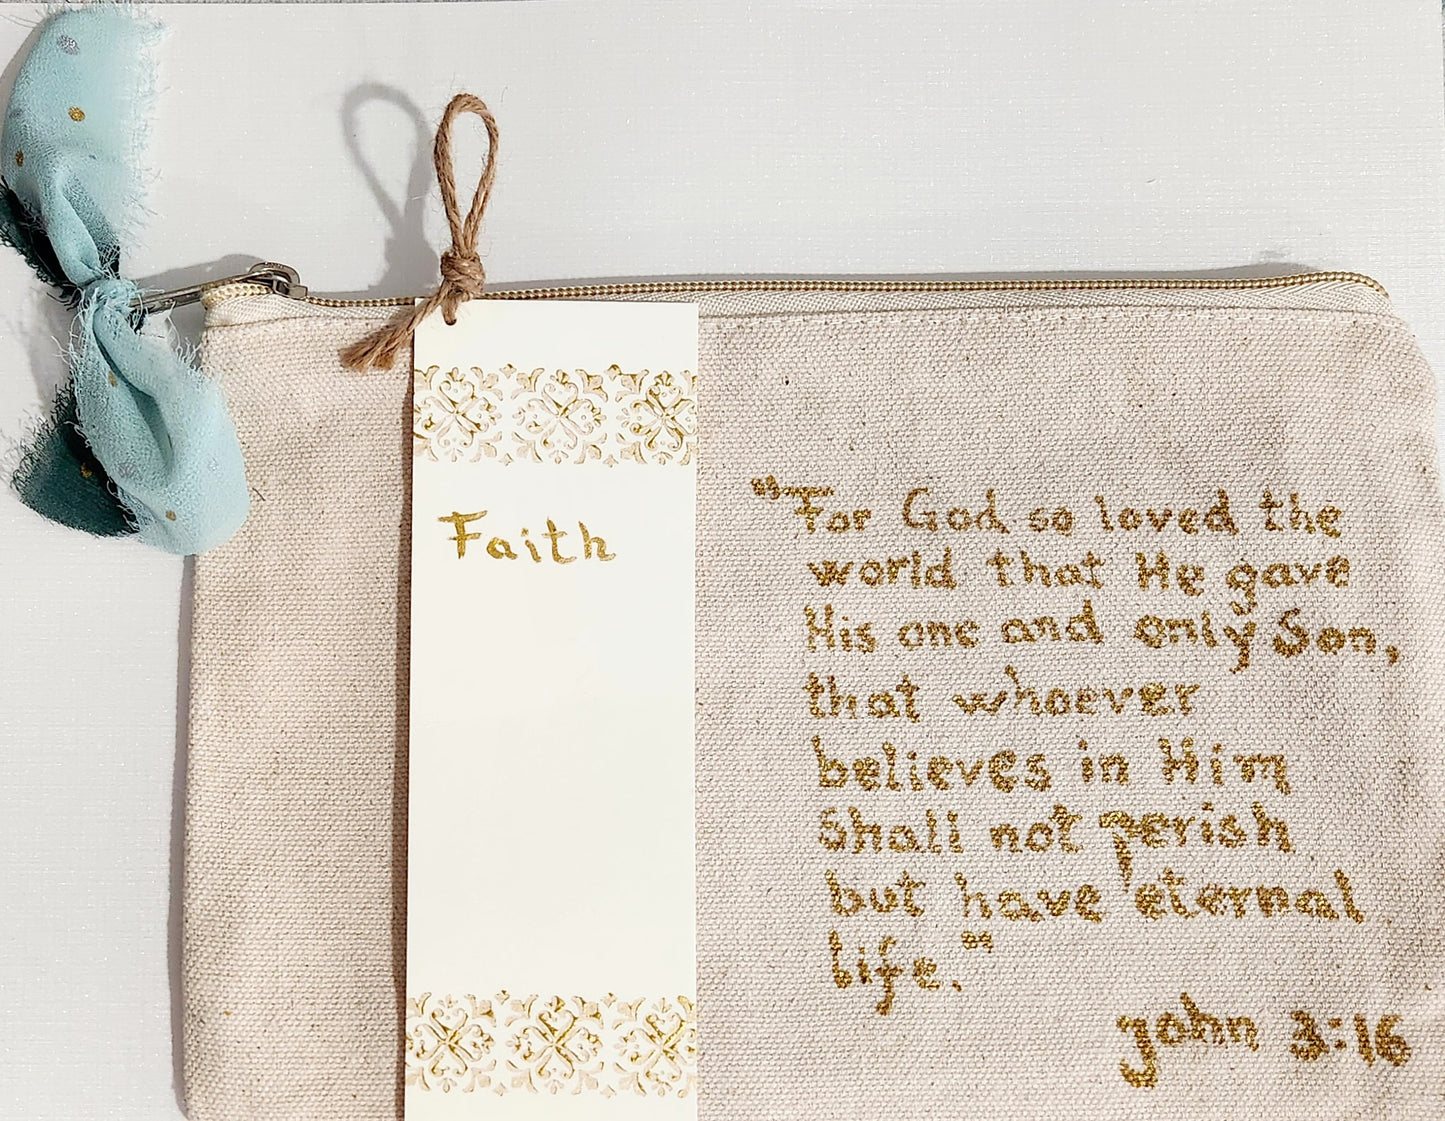 Faith
"For God so loved the
world that He gave
His one and only Son,
that whoever
believes in Him
shall not perish
but have eternal
life."
John 3:16